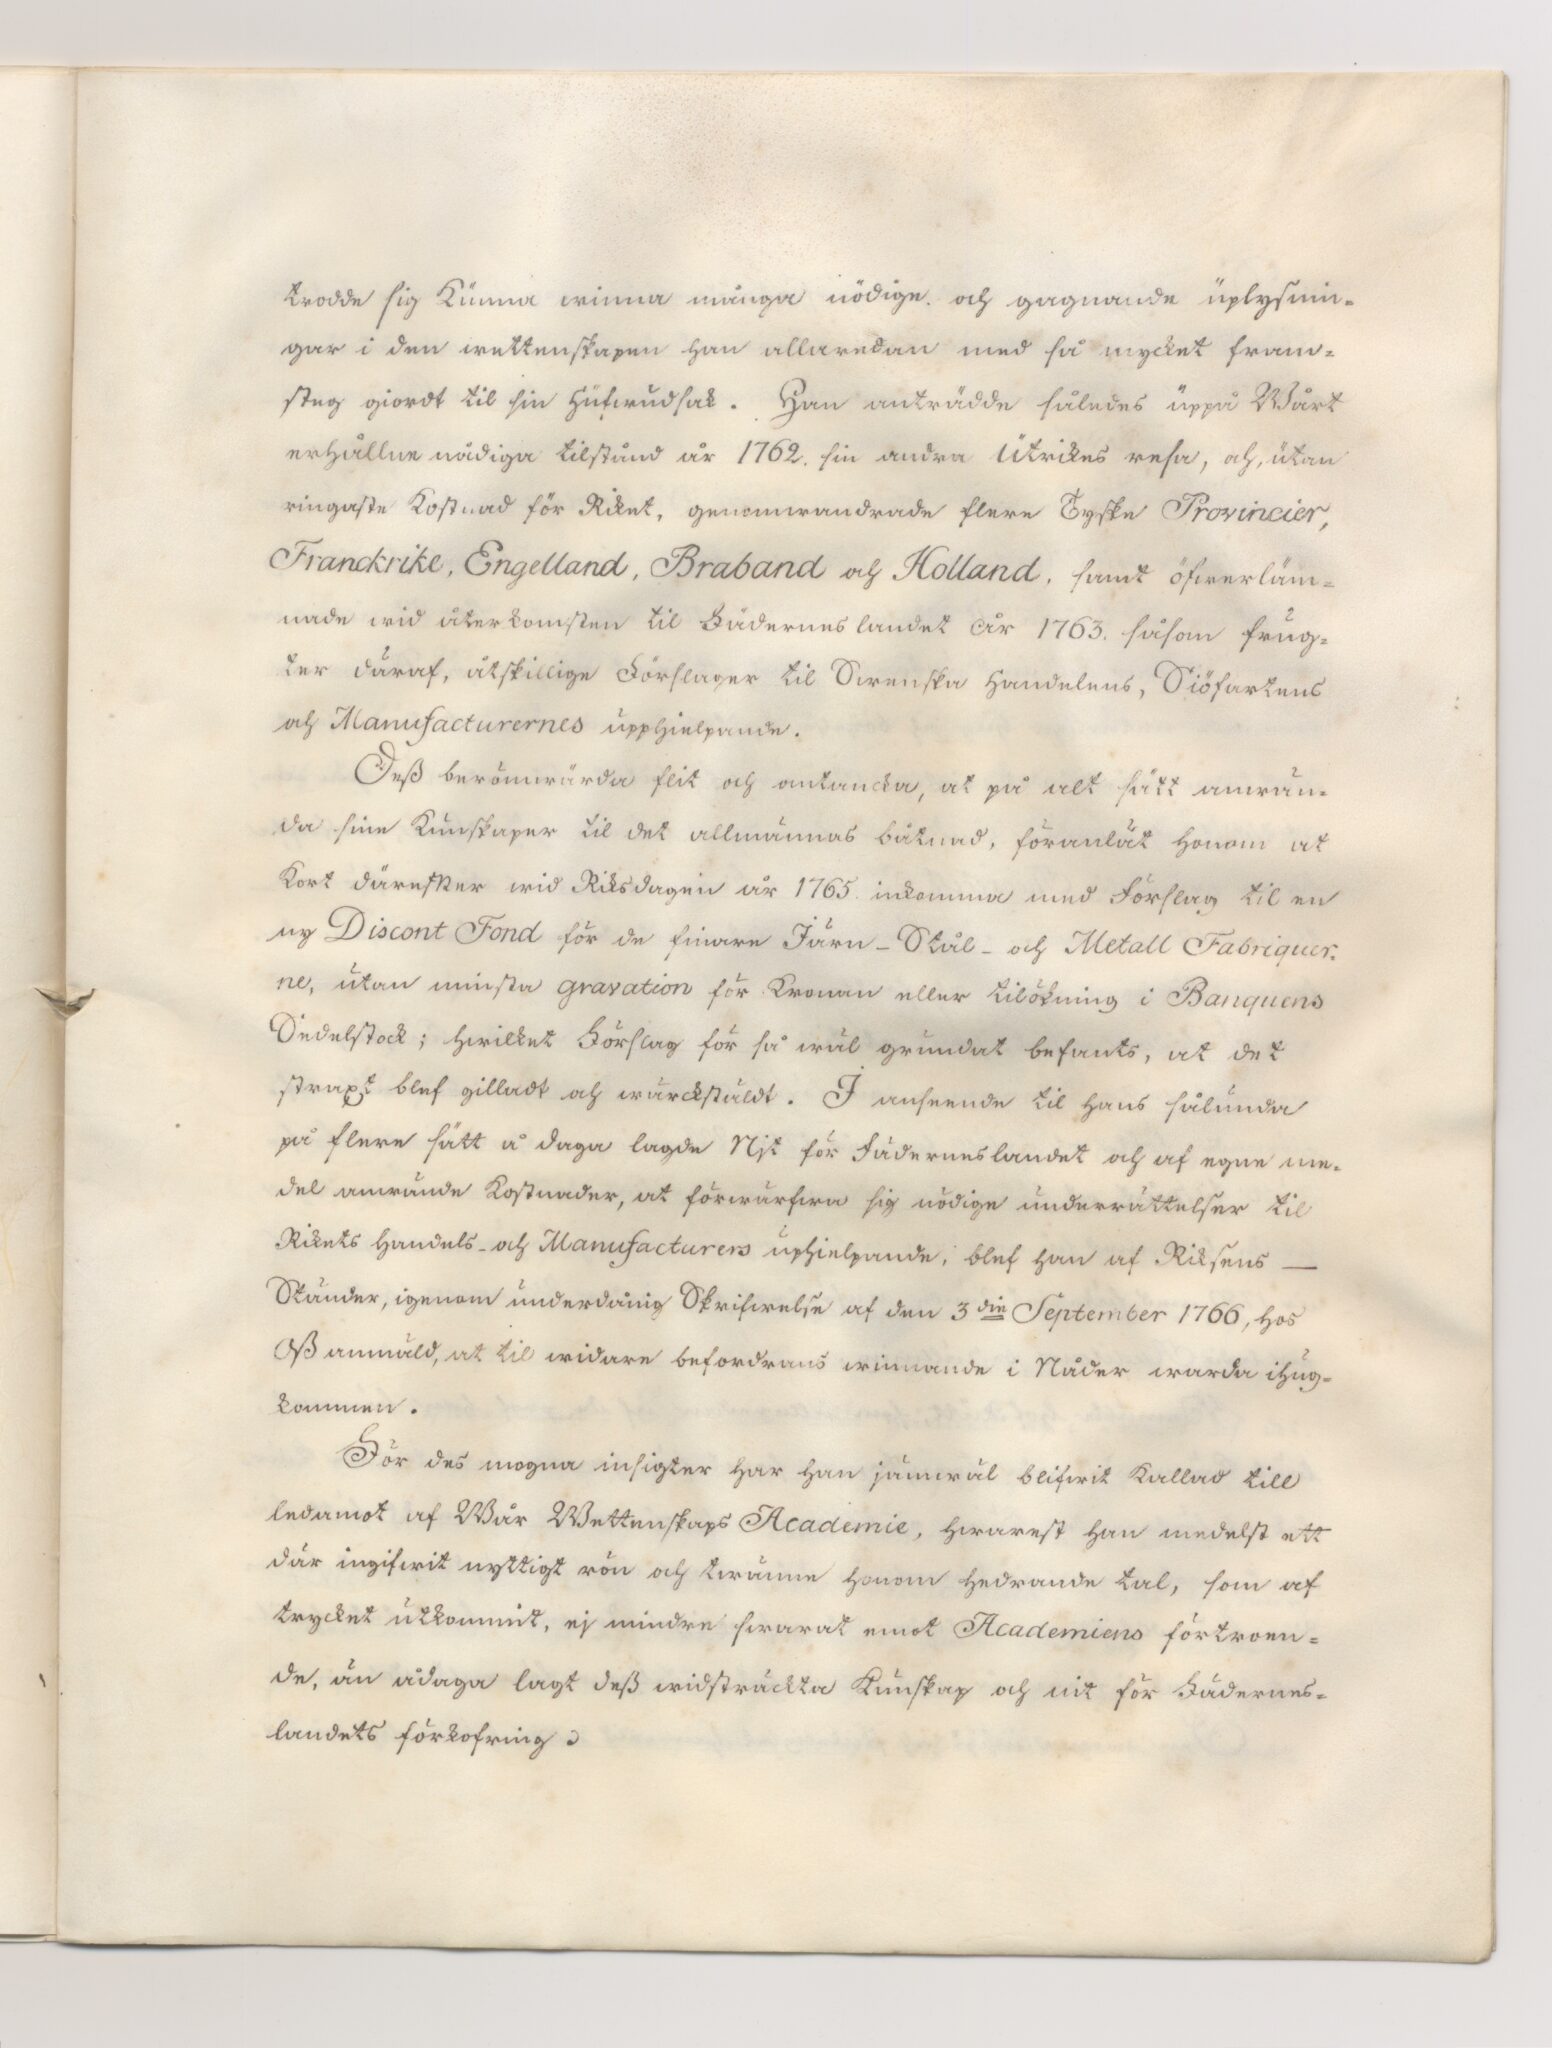 trodde sig kunna winna många nödige och gagnande uplysnin-
gar i den wettenskapen han allaredan med så mycket fram-
steg giordt til sin hufwudsak. Han anträdde således uppå Wårt
erhållne nådiga tilstånd år 1762. sin andra Utrikes resa, och, utan
ringaste Kostnad för Riket, genomwandrade flere Tyske Provincier,
Franckrike, Engelland, Braband och Holland, samt öfwerläm-
nade wid återkomsten til Fädernes landet år 1763. såsom frug-
ter däraf, åtskillige Förslager til Swenska Handelens, Siöfartens
och Manufacturernes upphielpande.
Deß berömwärda flit och omtancka, at på alt sätt anwän-
da sine Kunskaper til det allmännas båtnad, föranlät honom at
kort därefter wid Riksdagen år 1765. inkomma med Förslag til en
ny Discont Fond för de finare Järn- Stål- och Metall Fabriquer-
ne, utan minsta gravation för Kronan eller tilökning i Banquens
Sedelstock; hwilket Förslag för så wäl grundat befants, at det
straxt blef gilladt och wärckstäldt. I anseende til hans sålunda
på flere sätt å daga lagde Nit för Fäderneslandet och af egne me-
del anwände Kostnader, at förwärfwa sig nödige underrättelser til
Rikets Handels- och Manufacturers uphielpande, blef han af Riksens
Ständer, igenom underdånig Skrifwelse af den 3 die September 1766, hos
Oß anmäld, at til widare befordrans winnande i Nåder warda ihug-
kommen.
För des mogna insigter har han jämwäl blifwit Kallad till
ledamot af Wår Wettenskaps Academie, hwarest han medelst ett
där ingifwit nyttigt rön och twänne honom hedrande tal, som af
trycket utkommit, ej mindre swarat emot Academiens förtroen-
de, än ådaga lagt deß widsträckta Kunskap och nit för Fädernes-
landets förkofring